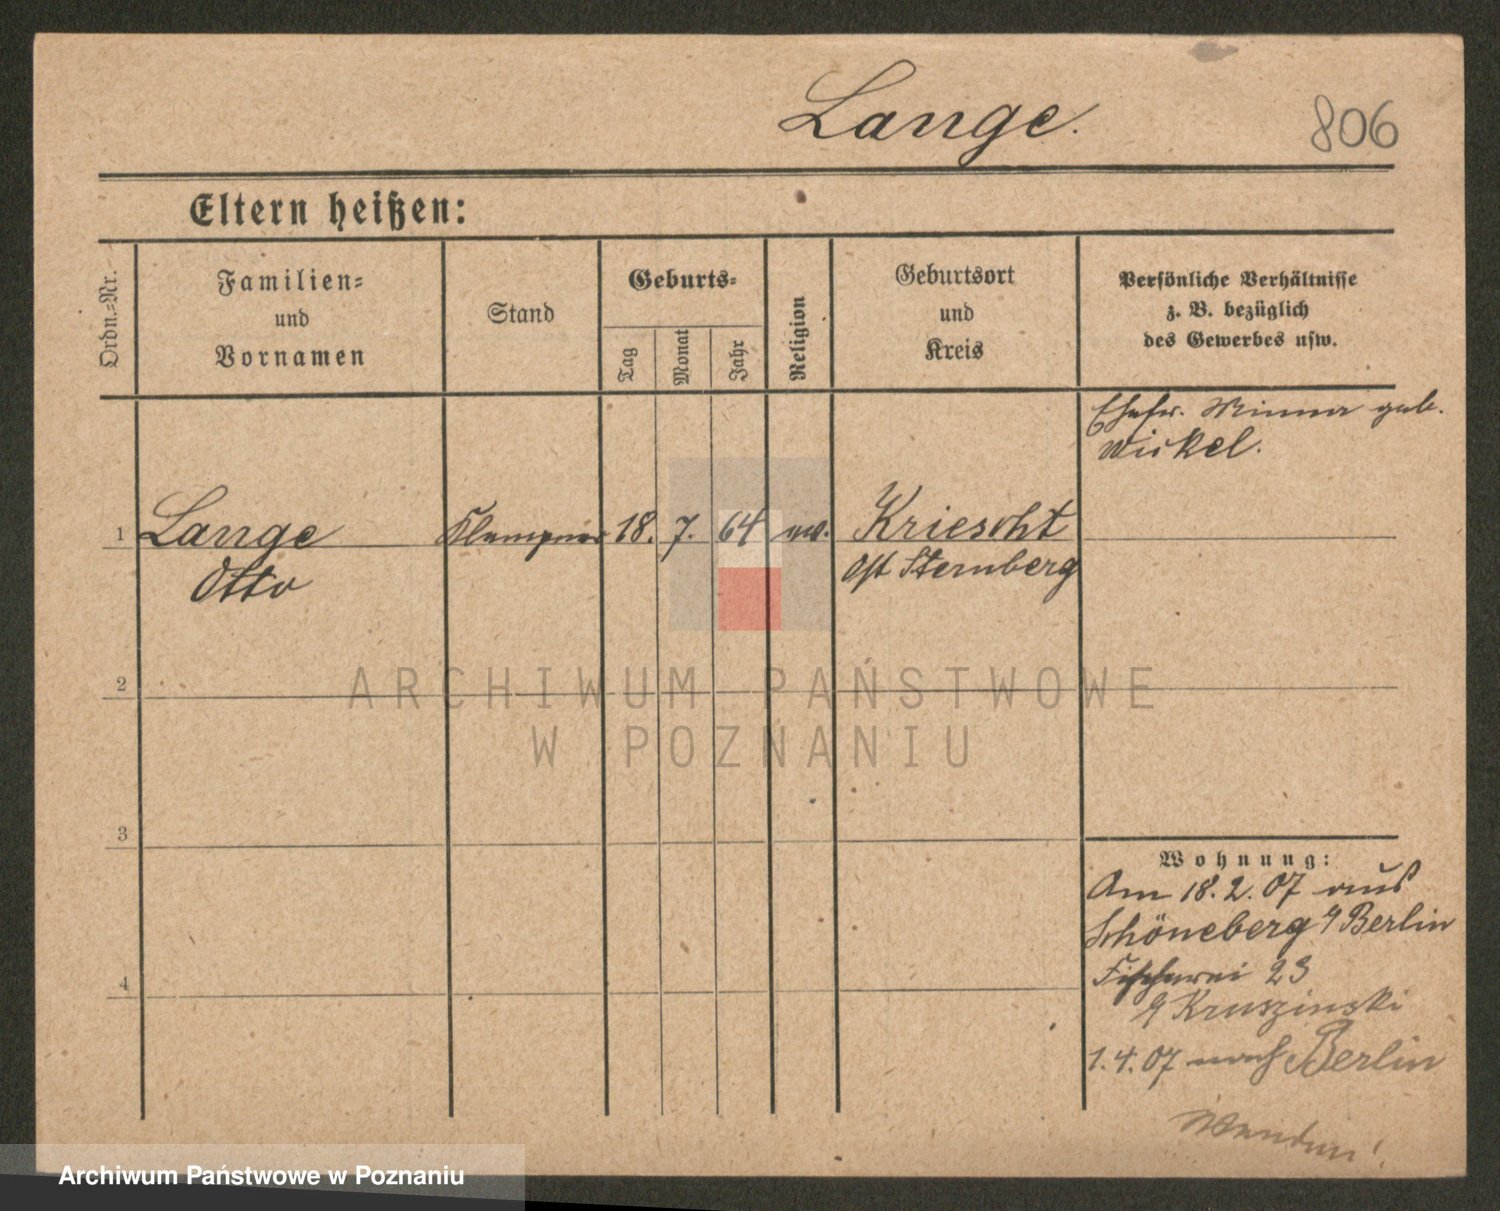 Lange.
806
Eltern heißen:
Ordn.-Nr.
Familien-
und
Vornamen
Stand
Geburts-
Tag
Monat
Jahr
Religion
Geburtsort
und
Kreis
Persönliche Verhältnisse
z. B. bezüglich
des Gewerbes usw.
Ehefr. Minna geb.
Wickel.
1
Lange
Klempner
18.
7.
64
ev.
Kriescht
Otto
Ost Sternberg
2
ARCHIWUM PAŃSTWOWE
W POZNANIU
3
Wohnung:
Am 18.2.07 aus
Schöneberg Berlin
Fischerei 23
Kruszinski
4
1.4.07 nach Berlin
Wenden!
Archiwum Państwowe w Poznaniu